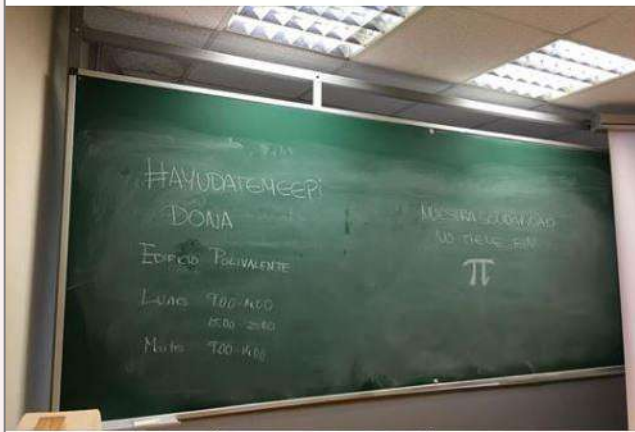 #AYUDATEMEEPI
DONA
EDIFICIO POLIVALENTE
LUNES 9:00-14:00
15:00-20:00
Martes 9:00-14:00
NUESTRA
NO TIENE FIN
π